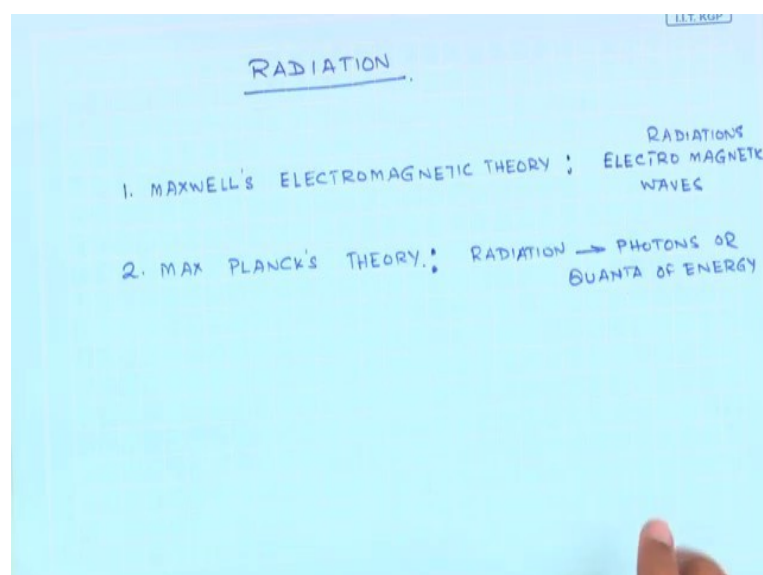 I.I.T. KGP
RADIATION.
1. MAXWELL'S ELECTROMAGNETIC THEORY : RADIATIONS
ELECTRO MAGNETIC
WAVES
2. MAX PLANCK'S THEORY. : RADIATION → PHOTONS OR
QUANTA OF ENERGY